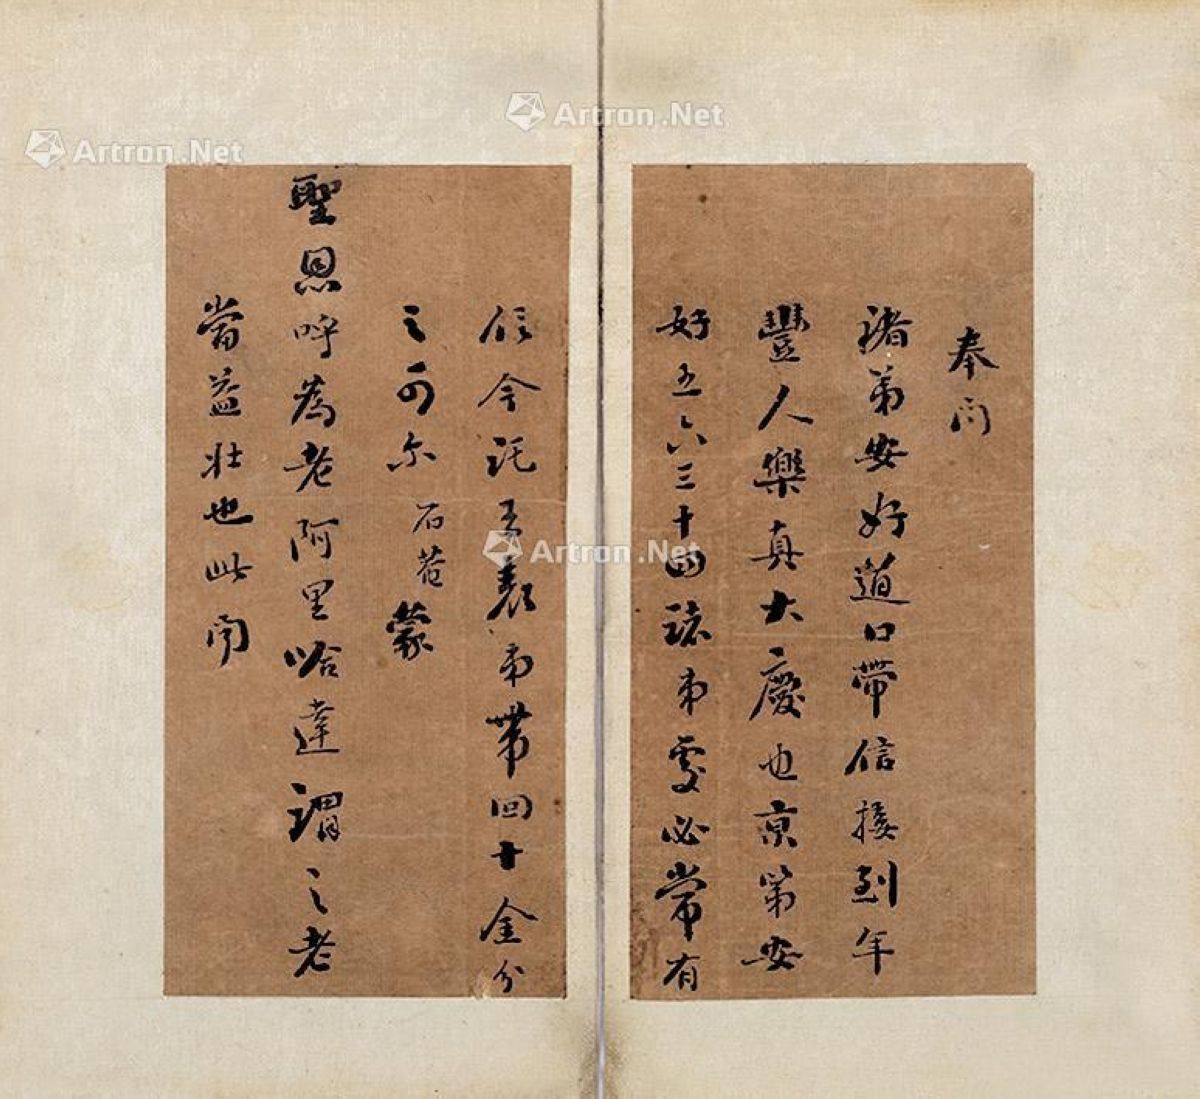 奉问
诸弟安好道口带信接到年
豐人樂真大慶也京第安
好五六三十四諸弟處必常有
信今託弟帶回廿金分
之可尔 石菴 蒙
聖恩呼為老阿里哈達謂之老
當益壯也此间
Artron.Net
Artron.Net
Artron.Net